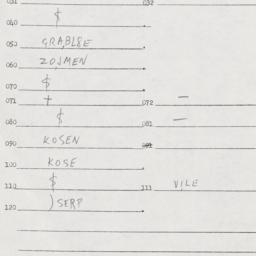 031 032
040 $
050 GRABLSE
060 ZOJMEN
070 $
071 † 072 —
080 $ 081 —
090 KOSEN 091
100 KOSE
110 $ 111 VILE
120 )SERP